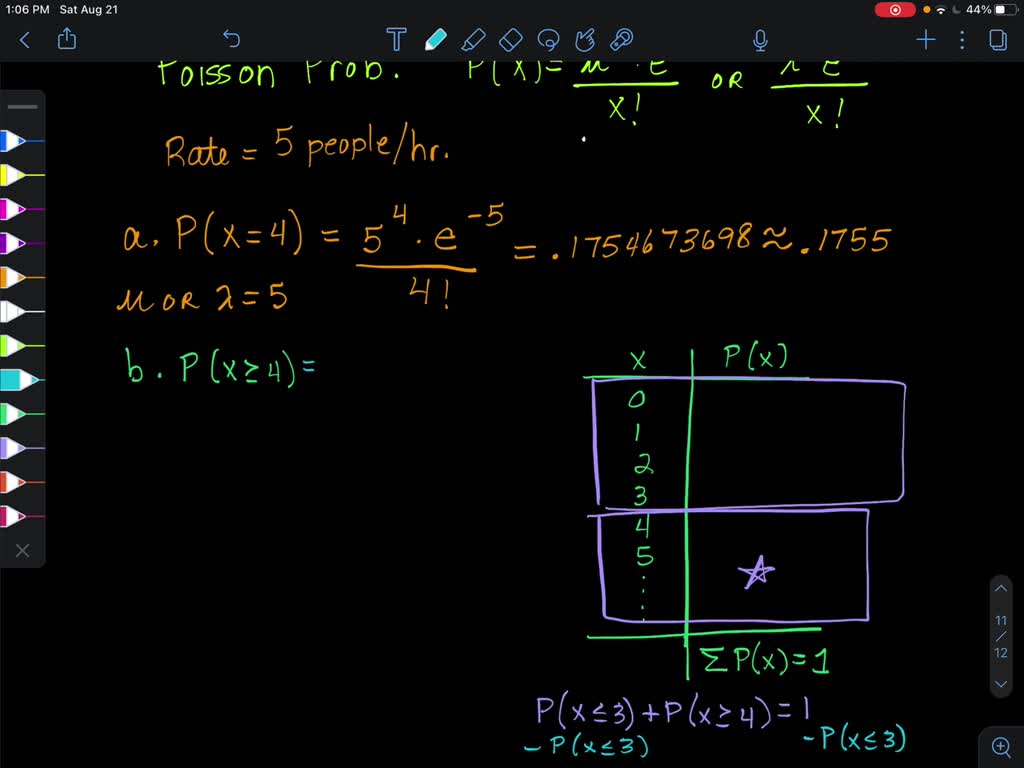 1:06 PM Sat Aug 21 44%
T
Poisson Prob. P(x) = μ · e / x! OR λ e / x!
Rate = 5 people/hr.
a. P(x=4) = 5^4 · e^-5 / 4! = .1754673698 ≈ .1755
μ OR λ = 5
b. P(x≥4) =
x P(x)
0
1
2
3
4
5
⋮
ΣP(x)=1
P(x≤3)+P(x≥4)=1
-P(x≤3) -P(x≤3)
11
/
12